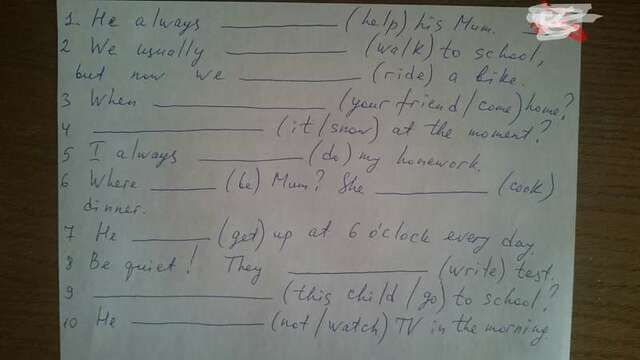 1. He always ____________ (help) his Mum.
2 We usually ____________ (walk) to school,
but now we ____________ (ride) a bike.
3 When ____________ (your friend/come) home?
4 ____________ (it/snow) at the moment?
5 I always ____________ (do) my homework.
6 Where ______ (be) Mum? She ____________ (cook)
dinner.
7 He ________ (get) up at 6 o'clock every day.
8 Be quiet! They ____________ (write) test.
9 ____________ (this child/go) to school?
10 He ____________ (not/watch) TV in the morning.